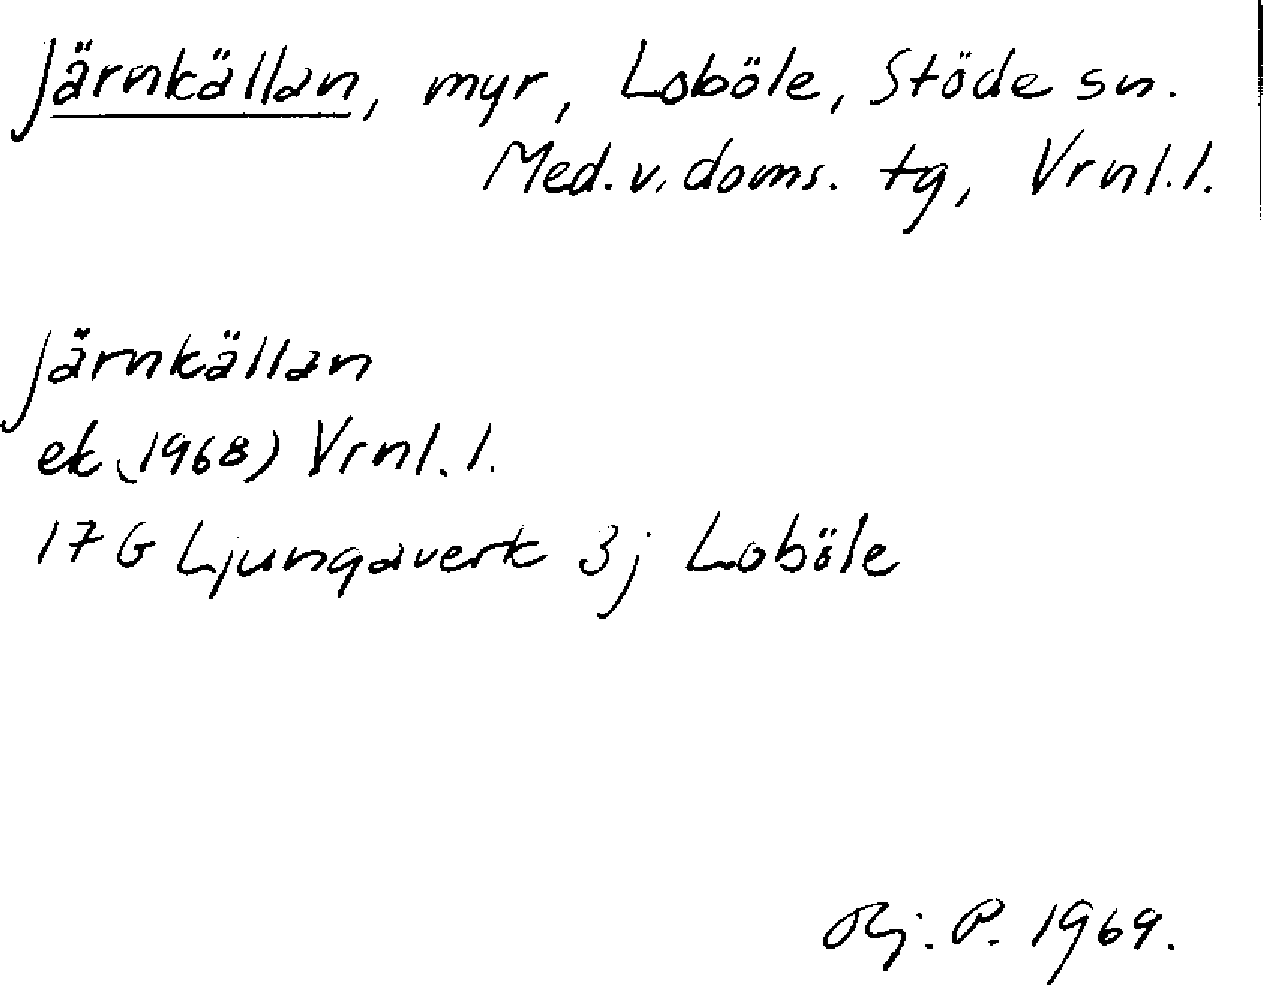 Järnkällan, myr, Loböle, Stöde sn.
Med. v. doms. tg, Vrnl. l.
Järnkällan
ek (1968) Vrnl. l.
17 G Ljungaverk 3j Loböle
P. 1969.